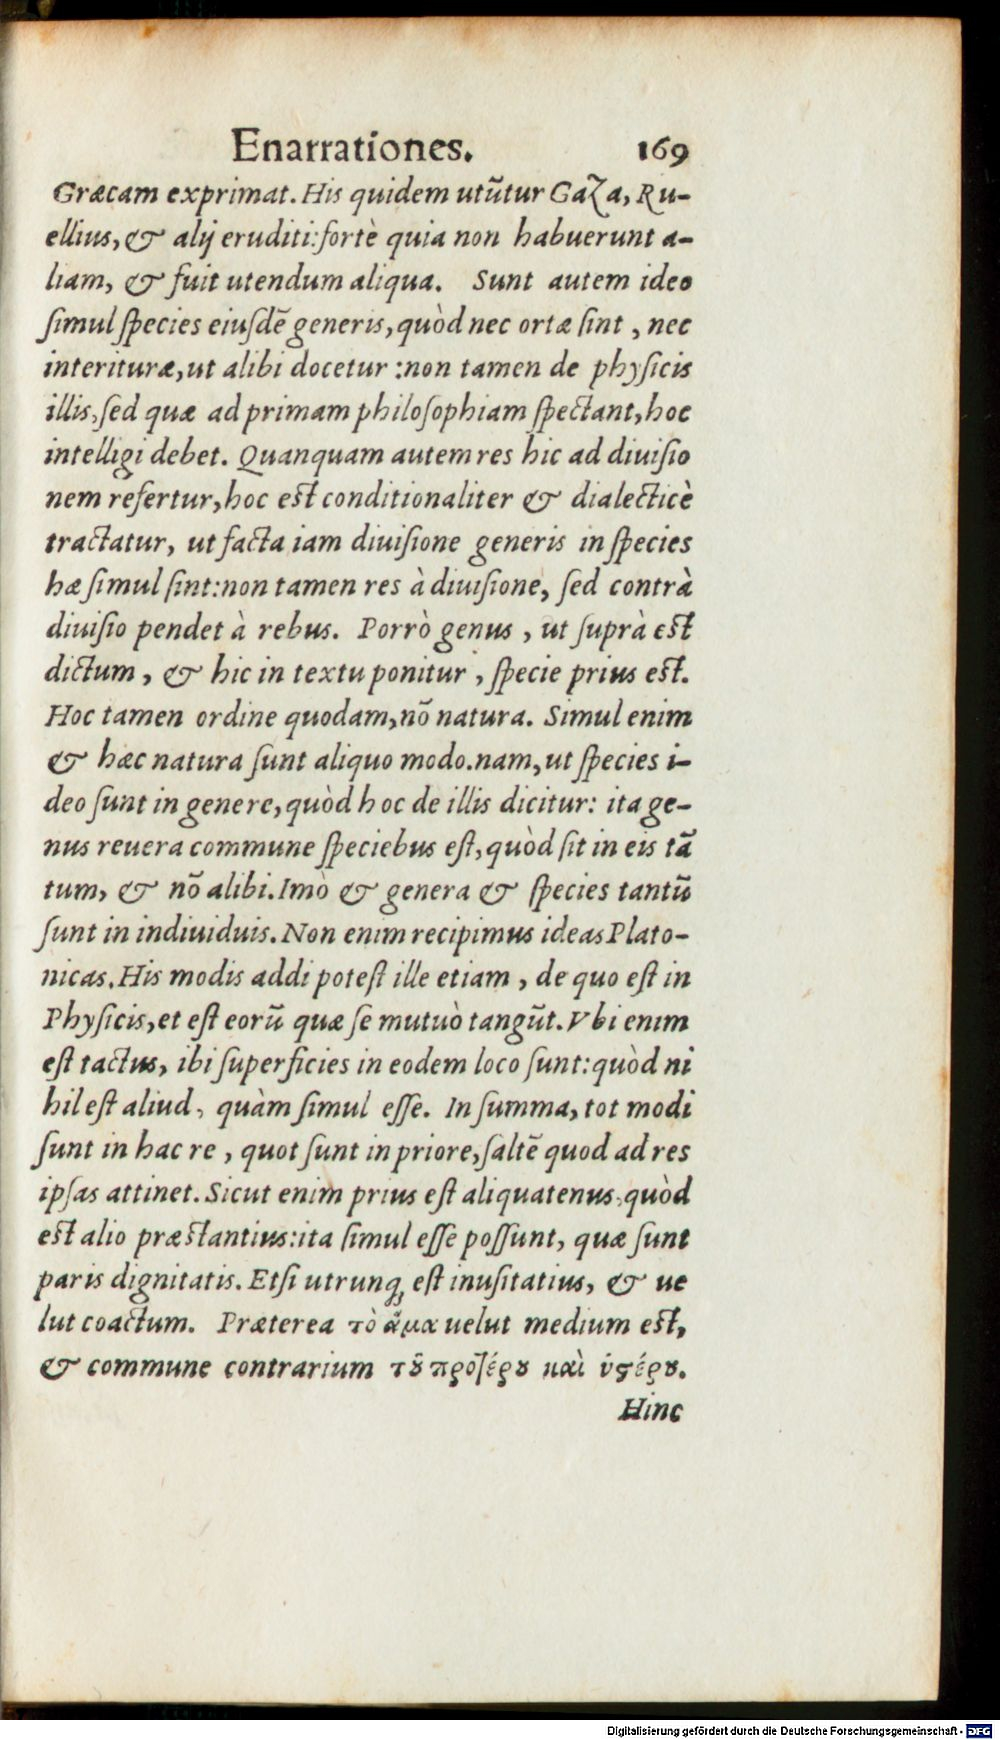 Enarrationes. 169
Græcam exprimat. His quidem utũtur Gaza, Ru-
ellius, & alij eruditi: fortè quia non habuerunt a-
liam, & fuit utendum aliqua. Sunt autem ideo
ſimul ſpecies eiuſdẽ generis, quòd nec ortæ ſint, nec
interituræ, ut alibi docetur: non tamen de phyſicis
illis, ſed quæ ad primam philoſophiam ſpectant, hoc
intelligi debet. Quanquam autem res hic ad diuiſio
nem refertur, hoc eſt conditionaliter & dialecticè
tractatur, ut facta iam diuiſione generis in ſpecies
hæ ſimul ſint: non tamen res à diuiſione, ſed contrà
diuiſio pendet à rebus. Porrò genus, ut ſuprà eſt
dictum, & hic in textu ponitur, ſpecie prius eſt.
Hoc tamen ordine quodam, nõ natura. Simul enim
& hæc natura ſunt aliquo modo. nam, ut ſpecies i-
deo ſunt in genere, quòd hoc de illis dicitur: ita ge-
nus reuera commune ſpeciebus eſt, quòd ſit in eis tã
tum, & nõ alibi. Imò & genera & ſpecies tantũ
ſunt in indiuiduis. Non enim recipimus ideas Plato-
nicas. His modis addi poteſt ille etiam, de quo eſt in
Phyſicis, et eſt eorũ quæ ſe mutuò tangũt. Vbi enim
eſt tactus, ibi ſuperficies in eodem loco ſunt: quòd ni
hil eſt aliud, quàm ſimul eſſe. In ſumma, tot modi
ſunt in hac re, quot ſunt in priore, ſaltẽ quod ad res
ipſas attinet. Sicut enim prius eſt aliquatenus, quòd
eſt alio præſtantius: ita ſimul eſſe poſſunt, quæ ſunt
paris dignitatis. Etſi utrunq; eſt inuſitatius, & ue
lut coactum. Præterea τὸ ἅμα uelut medium eſt,
& commune contrarium τȣ̃ προτέρȣ καὶ ὑϛέρȣ.
Hinc
Digitalisierung gefördert durch die Deutsche Forschungsgemeinschaft - DFG